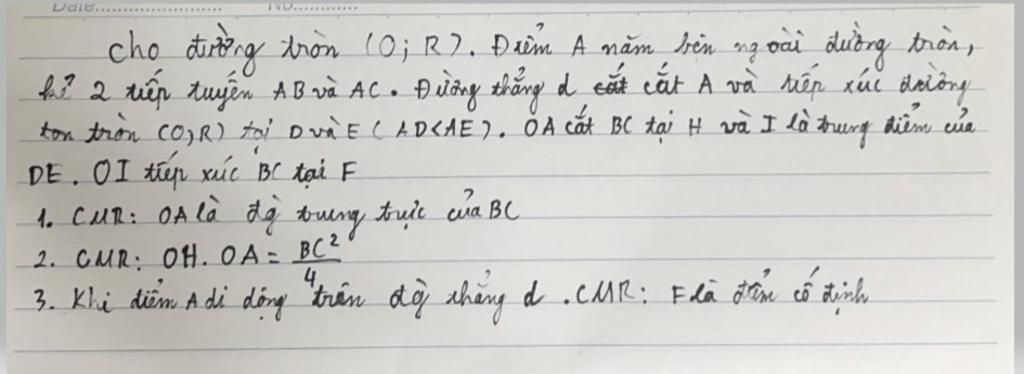 Date................... No............
Cho đường tròn (O; R). Điểm A nằm bên ngoài đường tròn,
kẻ 2 tiếp tuyến AB và AC. Đường thẳng d cắt cắt A và tiếp xúc đường
ton tròn (O,R) tại D và E (AD<AE). OA cắt BC tại H và I là trung điểm của
DE. OI tiếp xúc BC tại F
1. CMR: OA là đg trung trực của BC
2. CMR: OH. OA = BC²/4
3. Khi điểm A di động trên đg thẳng d. CMR: F là điểm cố định